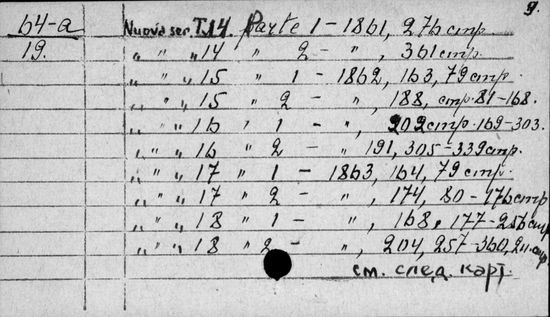 9.
64-а Nuova ser. T.14. Parte 1 - 1861, 276 стр.
19. " " " 14 " 2 - ", 361 стр.
" " " 15 " 1 - 1862, 163, 79 стр.
" " " 15 " 2 - ", 188, стр. 81-168.
" " " 16 " 1 - ", 202 стр. 169-303.
" " " 16 " 2 - " 191, 305-339 стр.
" " " 17 " 1 - 1863, 164, 79 стр.
" " " 17 " 2 - ", 174, 80-176 стр
" " " 18 " 1 - ", 168, 177-256 стр
" " " 18 " 2 - ", 204, 257-360,
см. след. карт.